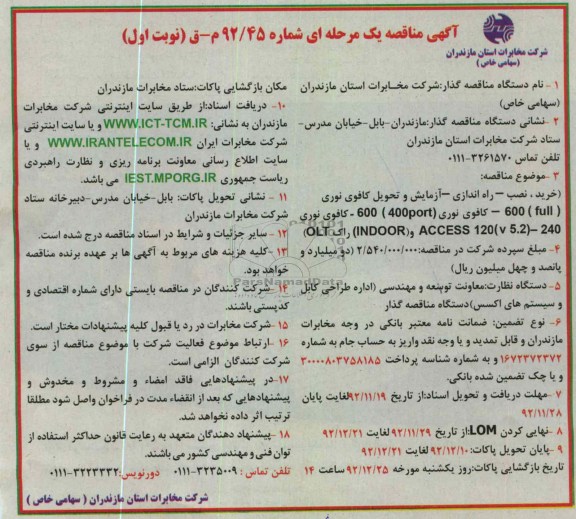 آگهی مناقصه یک مرحله ای شماره ۹۲/۴۵ م-ق (نوبت اول)
شرکت مخابرات استان مازندران
(سهامی خاص)
۱ - نام دستگاه مناقصه گذار:شرکت مخابرات استان مازندران
(سهامی خاص)
۲ -نشانی دستگاه مناقصه گذار:مازندران-بابل-خیابان مدرس-
ستاد شرکت مخابرات استان مازندران
تلفن تماس ۳۲۶۱۵۷۰-۰۱۱۱
۳ -موضوع مناقصه:
(خرید ، نصب – راه اندازی –آزمایش و تحویل کافوی نوری
( full ) 600 – کافوی نوری (400port) 600 - کافوی نوری
240 –ACCESS 120(v 5.2) و(INDOOR) راک OLT)
۴- مبلغ سپرده شرکت در مناقصه:۲/۵۴۰/۰۰۰/۰۰۰ (دو میلیارد و
پانصد و چهل میلیون ریال)
۵ -دستگاه نظارت:معاونت توسعه و مهندسی (اداره طراحی کابل
و سیستم های اکسس)دستگاه مناقصه گذار
۶- نوع تضمین: ضمانت نامه معتبر بانکی در وجه مخابرات
مازندران و قابل تمدید و یا وجه نقد واریز به حساب جام به شماره
۱۶۷۲۳۷۲۳۷۲و به شماره شناسه پرداخت ۳۰۰۰۰۸۰۳۷۵۸۱۸۵
و یا چک تضمین شده بانکی.
۷-مهلت دریافت و تحویل اسناد:از تاریخ ۹۲/۱۱/۱۹لغایت پایان
۹۲/۱۱/۲۸
۸ -نهایی کردن LOM:از تاریخ ۹۲/۱۱/۲۹ لغایت ۹۲/۱۲/۲۱
۹ -پایان تحویل پاکات:۹۲/۱۲/۱۰ لغایت ۹۲/۱۲/۲۱
تاریخ بازگشایی پاکات:روز یکشنبه مورخه ۹۲/۱۲/۲۵ساعت ۱۴
مکان بازگشایی پاکات:ستاد مخابرات مازندران
۱۰- دریافت اسناد:از طریق سایت اینترنتی شرکت مخابرات
مازندران به نشانی: WWW.ICT-TCM.IR و یا سایت اینترنتی
شرکت مخابرات ایران WWW.IRANTELECOM.IR و یا
سایت اطلاع رسانی معاونت برنامه ریزی و نظارت راهبردی
ریاست جمهوری IEST.MPORG.IR می باشد.
۱۱ - نشانی تحویل پاکات: بابل-خیابان مدرس-دبیرخانه ستاد
شرکت مخابرات مازندران
۱۲ - سایر جزئیات و شرایط در اسناد مناقصه درج شده است.
۱۳ -کلیه هزینه های مربوط به آگهی ها بر عهده برنده مناقصه
خواهد بود.
۱۴ -شرکت کنندگان در مناقصه بایستی دارای شماره اقتصادی و
کدپستی باشند.
۱۵ -شرکت مخابرات در رد یا قبول کلیه پیشنهادات مختار است.
۱۶ -ارتباط موضوع فعالیت شرکت با موضوع مناقصه از سوی
شرکت کنندگان الزامی است.
۱۷-در پیشنهادهایی فاقد امضاء و مشروط و مخدوش و
پیشنهادهایی که بعد از انقضاء مدت در فراخوان واصل شود مطلقا
ترتیب اثر داده نخواهد شد.
۱۸ -پیشنهاد دهندگان متعهد به رعایت قانون حداکثر استفاده از
توان فنی و مهندسی کشور می باشند.
تلفن تماس : ۳۲۳۵۰۰۹-۰۱۱۱ دورنویس:۳۲۲۳۳۳۲-۰۱۱۱
شرکت مخابرات استان مازندران ( سهامی خاص )